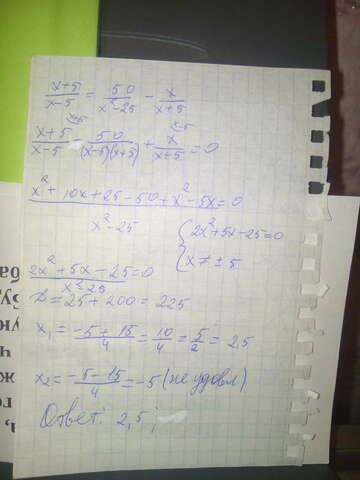 x+5/x-5 = 50/x²-25 - x/x+5
x+5/x-5 - 50/(x-5)(x+5) + x/x+5 = 0
x²+10x+25-50+x²-5x=0
x²-25
{2x²+5x-25=0
x≠±5
2x²+5x-25=0
x²-25
D=25+200=225
x₁=-5+15/4=10/4=5/2=25
x₂=-5-15/4=-5 (не удовл)
Ответ: 2,5;